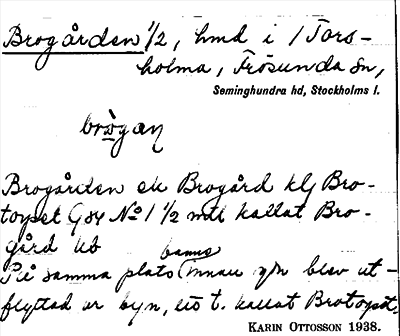 Brogården 1/2, hmd i 1 Tors-
holma, Frösunda sn,
Seminghundra hd, Stockholms l.
Brogården el Brogård klj Bro-
torpet G84 No 1 1/2 mtl kallat Bro-
gård Ub
På samma plats fanns innan gn blev ut-
flyttad ur byn, ett t. kallat Brotorpet,
KARIN OTTOSSON 1938.